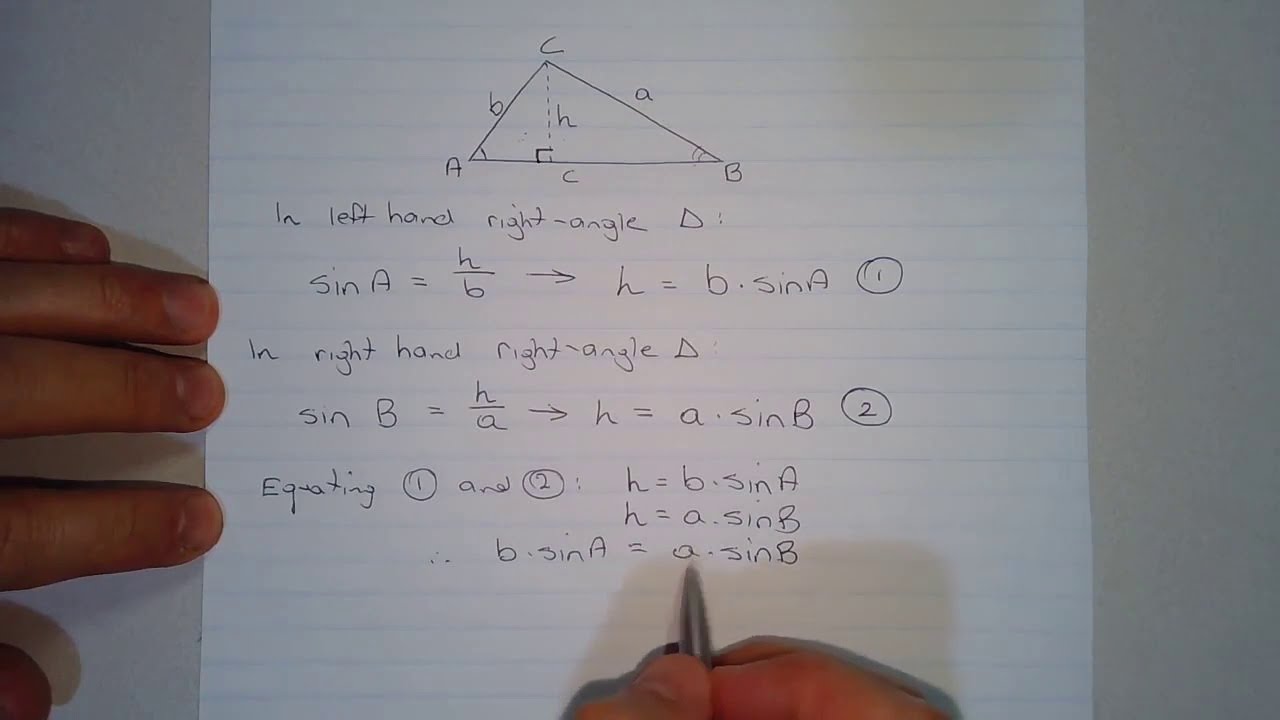 C
b a
h
A B
c
In left hand right-angle Δ:
sin A = h/b → h = b·sinA ①
In right hand right-angle Δ:
sin B = h/a → h = a·sinB ②
Equating ① and ②: h = b·sinA
h = a.sinB
∴ b·sinA = a·sinB